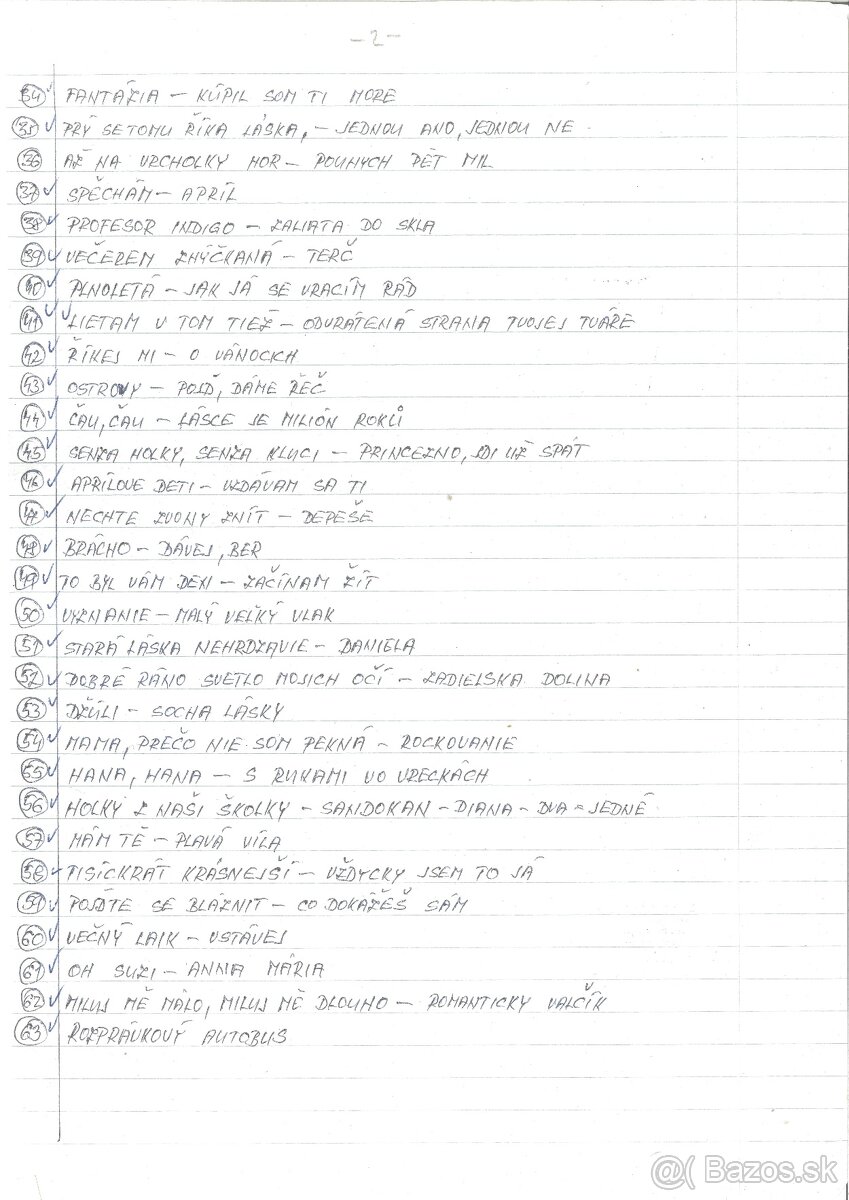 - 2 -
34 FANTÁZIA - KÚPIL SOM TI MORE
35 PRÝ SE TOMU ŘÍKA LÁSKA, - JEDNOU ANO, JEDNOU NE
36 AŽ NA VRCHOLKY HOR - POUHÝCH PĚT MIL
37 SPĚCHÁM - APRÍL
38 PROFESOR INDIGO - ZALIATA DO SKLA
39 VEČEREM ZHÝČKANÁ - TERČ
40 PLNOLETÁ - JAK JÁ SE VRACÍM RÁD
41 LIETAM V TOM TIEŽ - ODVRÁTENÁ STRANA TVOJEJ TVÁŘE
42 ŘÍKEJ MI - O VÁNOCICH
43 OSTROVY - POJĎ, DÁME ŘEČ
44 ČAU, ČAU - LÁSCE JE MILIÓN ROKŮ
45 SENZA HOLKY, SENZA KLUCI - PRINCEZNO, JDI UŽ SPÁT
46 APRÍLOVE DETI - VZDÁVAM SA TI
47 NECHTE ZVONY ZNÍT - DEPEŠE
48 BRÁCHO - DÁVEJ, BER
49 TO BYL VÁM DEN - ZAČÍNAM ŽÍT
50 VYZNANIE - MALÝ VEĽKÝ VLAK
51 STARÁ LÁSKA NEHRDZAVIE - DANIELA
52 DOBRÉ RÁNO SVETLO MOJICH OČÍ - ZADIELSKA DOLINA
53 DŽÚLI - SOCHA LÁSKY
54 MAMA, PREČO NIE SOM PEKNÁ - ROCKOVANIE
55 HANA, HANA - S RUKAMI VO VRECKÁCH
56 HOLKY Z NAŠÍ ŠKOLKY - SANDOKAN - DIANA - DVA = JEDNÉ
57 MÁM TĚ - PLAVÁ VÍLA
58 TISÍCKRÁT KRÁSNEJŠÍ - VŽDYCKY JSEM TO JÁ
59 POJĎTE SE BLÁZNIT - CO DOKÁŽEŠ SÁM
60 VEČNÝ LAIK - VSTÁVEJ
61 OH SUZI - ANNA MÁRIA
62 MILUJ MĚ MÁLO, MILUJ MĚ DLOUHO - ROMANTICKY VALČÍK
63 ROZPRÁVKOVÝ AUTOBUS
@( Bazos.sk